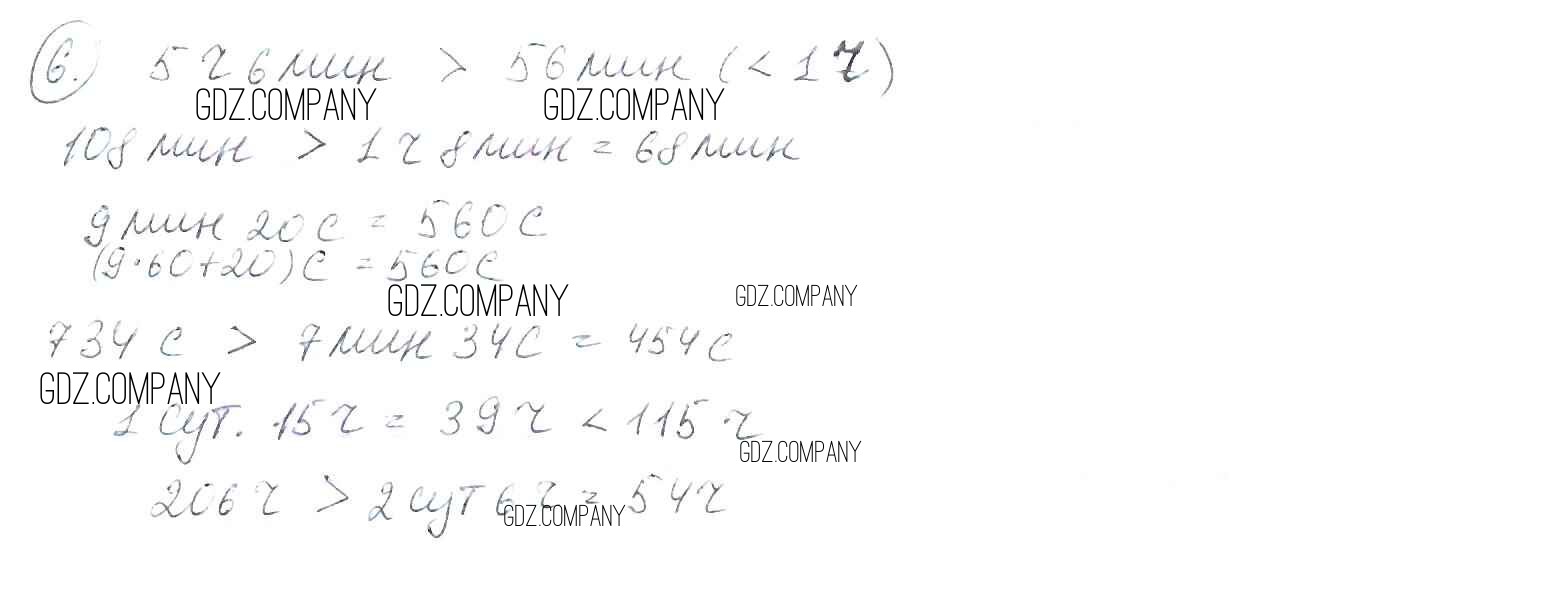 6. 5 ч 6 мин > 56 мин (< 1 ч)
GDZ.COMPANY GDZ.COMPANY
108 мин > 1 ч 8 мин = 68 мин
9 мин 20 с = 560 с
(9·60+20) с = 560 с
GDZ.COMPANY GDZ.COMPANY
734 с > 7 мин 34 с = 454 с
GDZ.COMPANY
1 сут. 15 ч = 39 ч < 115 ч
GDZ.COMPANY
206 ч > 2 сут 6 ч = 54 ч
GDZ.COMPANY